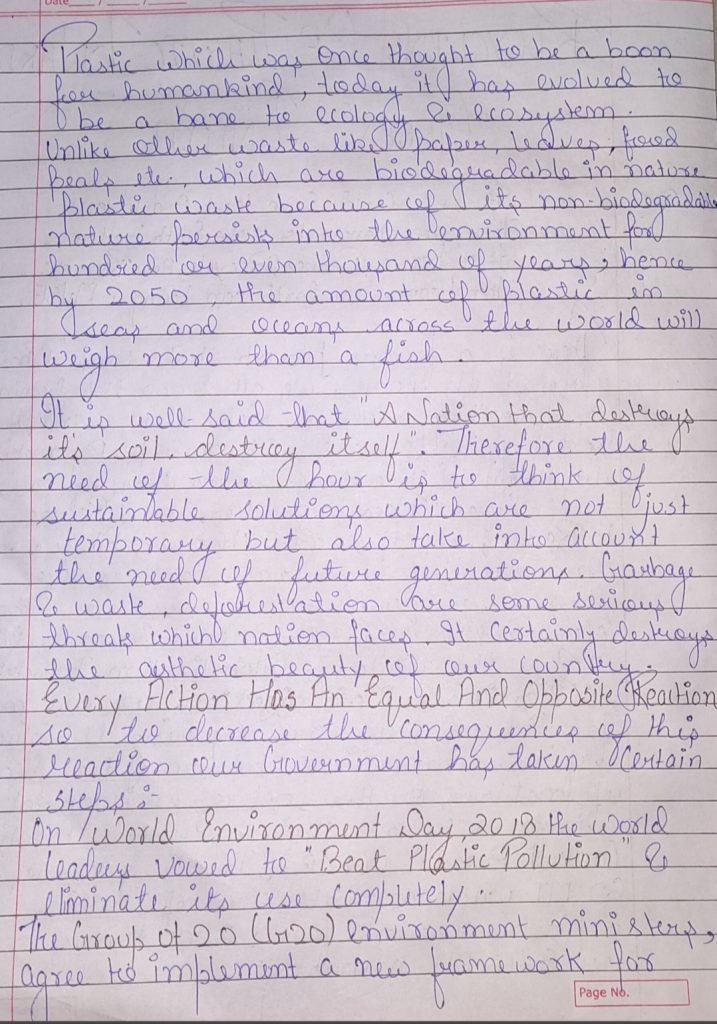 Date / /
Plastic which was once thought to be a boon
for humankind, today it has evolved to
be a bane to ecology & ecosystem.
Unlike other waste like paper, leaves, food
peals etc., which are biodegradable in nature
plastic waste because of its non-biodegradable
nature persists into the environment for
hundred or even thousand of years, hence
by 2050, the amount of plastic in
seas and oceans across the world will
weigh more than a fish.
It is well-said that "A Nation that destroys
it's soil, destroy itself". Therefore the
need of the hour is to think of
sustainable solutions which are not just
temporary but also take into account
the need of future generations. Garbage
& waste, deforestation are some serious
threats which nation faces. It certainly destroys
the aesthetic beauty of our country.
Every Action Has An Equal And Opposite Reaction
so to decrease the consequences of this
reaction our Government has taken certain
steps :-
On World Environment Day, 2018 the world
leaders vowed to "Beat Plastic Pollution" &
eliminate its use completely.
The Group of 20 (G20) environment ministers,
agree to implement a new framework for
Page No.